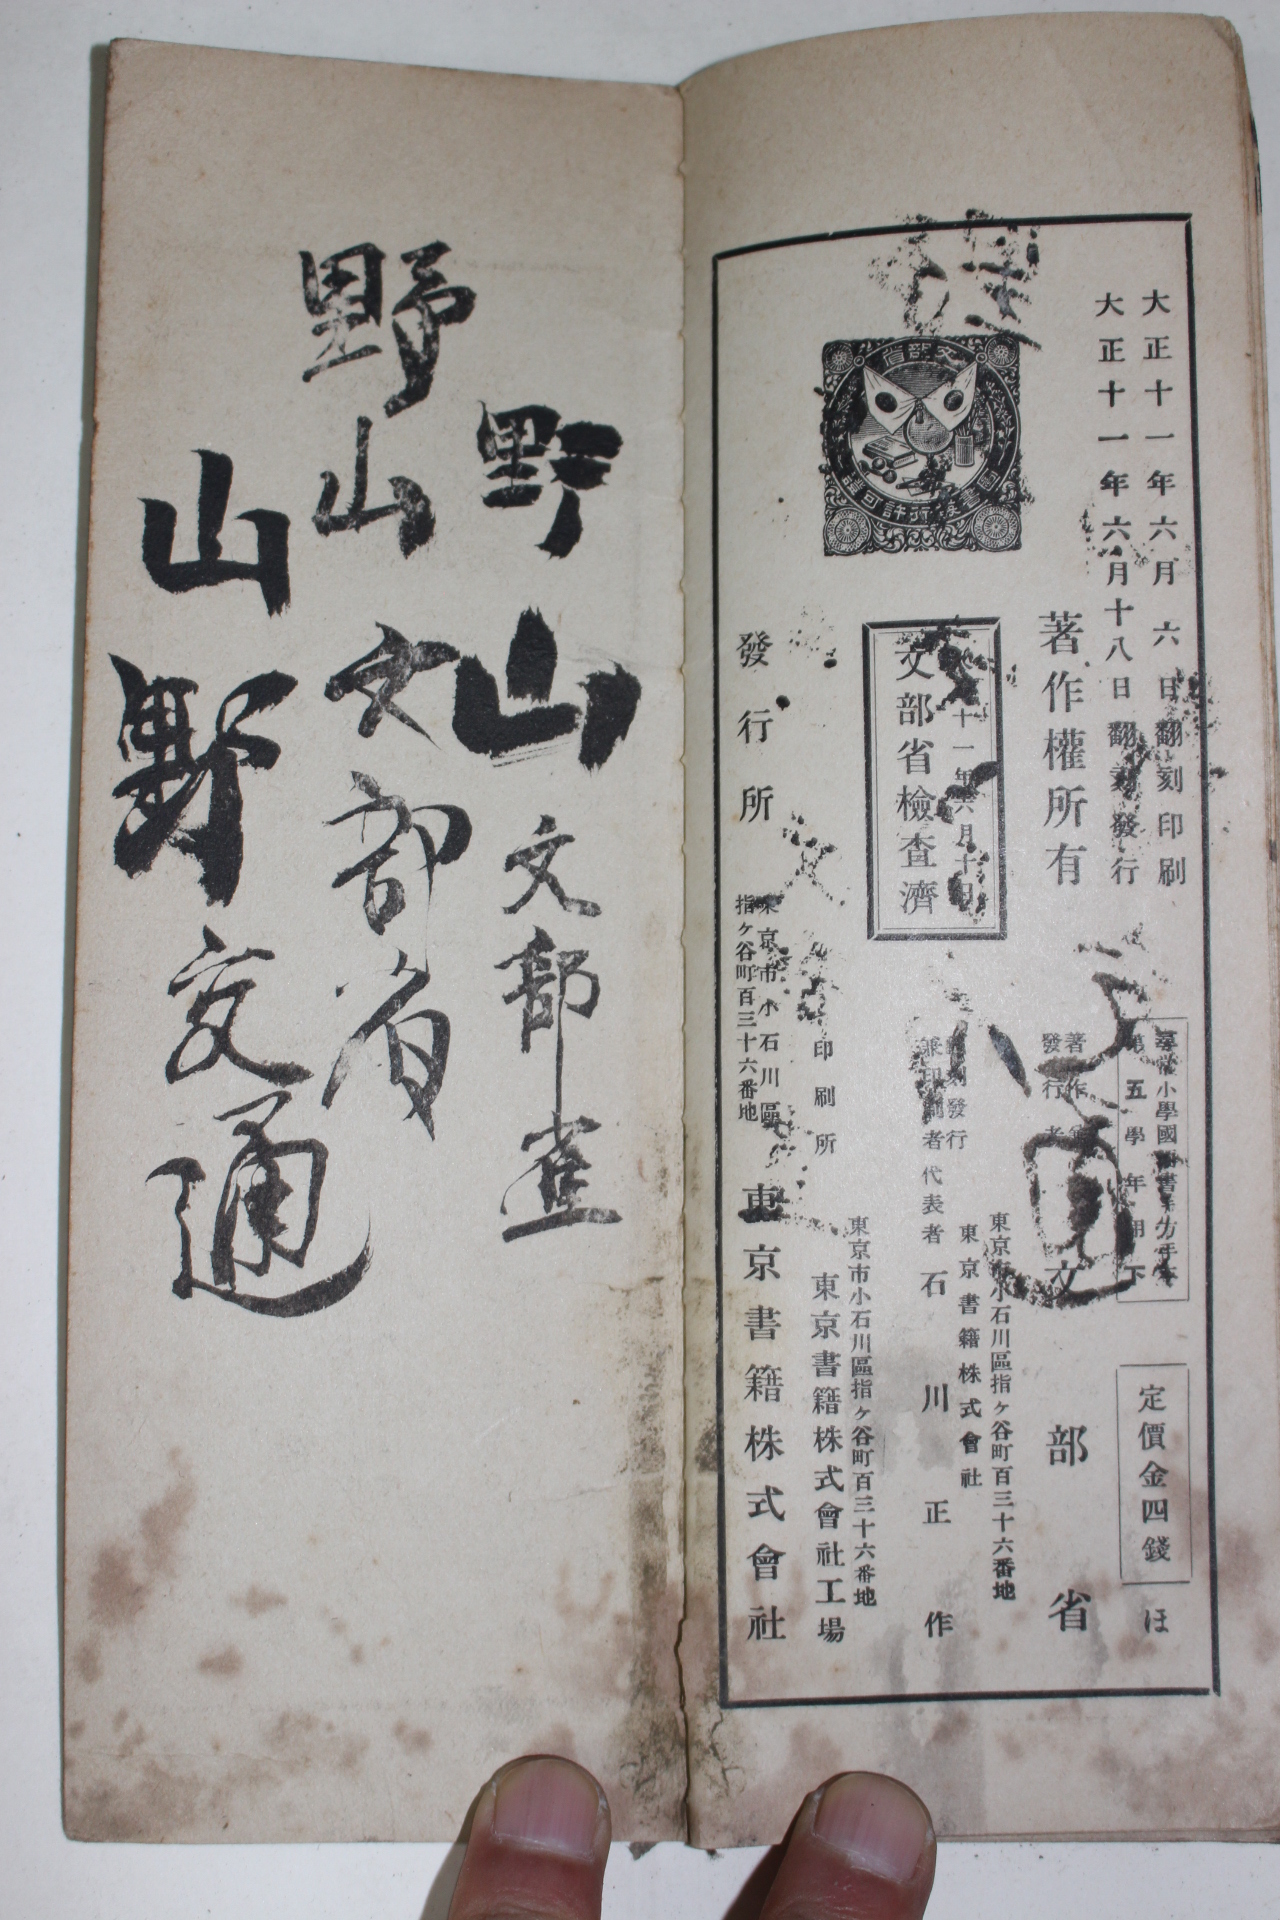 大正十一年六月六日翻刻印刷
大正十一年六月十八日翻刻發行
著作權所有
尋常小學國語書キ方手本
第五學年用下
定價金四錢
ほ
著作兼
發行者
文部省
文部省
圖書發行許可證
十一年六月十日
文部省檢査濟
翻刻發行
兼印刷者
東京市小石川區指ヶ谷町百三十六番地
東京書籍株式會社
代表者石川正作
印刷所
東京市小石川區指ヶ谷町百三十六番地
東京書籍株式會社工場
發行所
東京市小石川區
指ヶ谷町百三十六番地
東京書籍株式會社
野山文部
野山文部省
山野交通